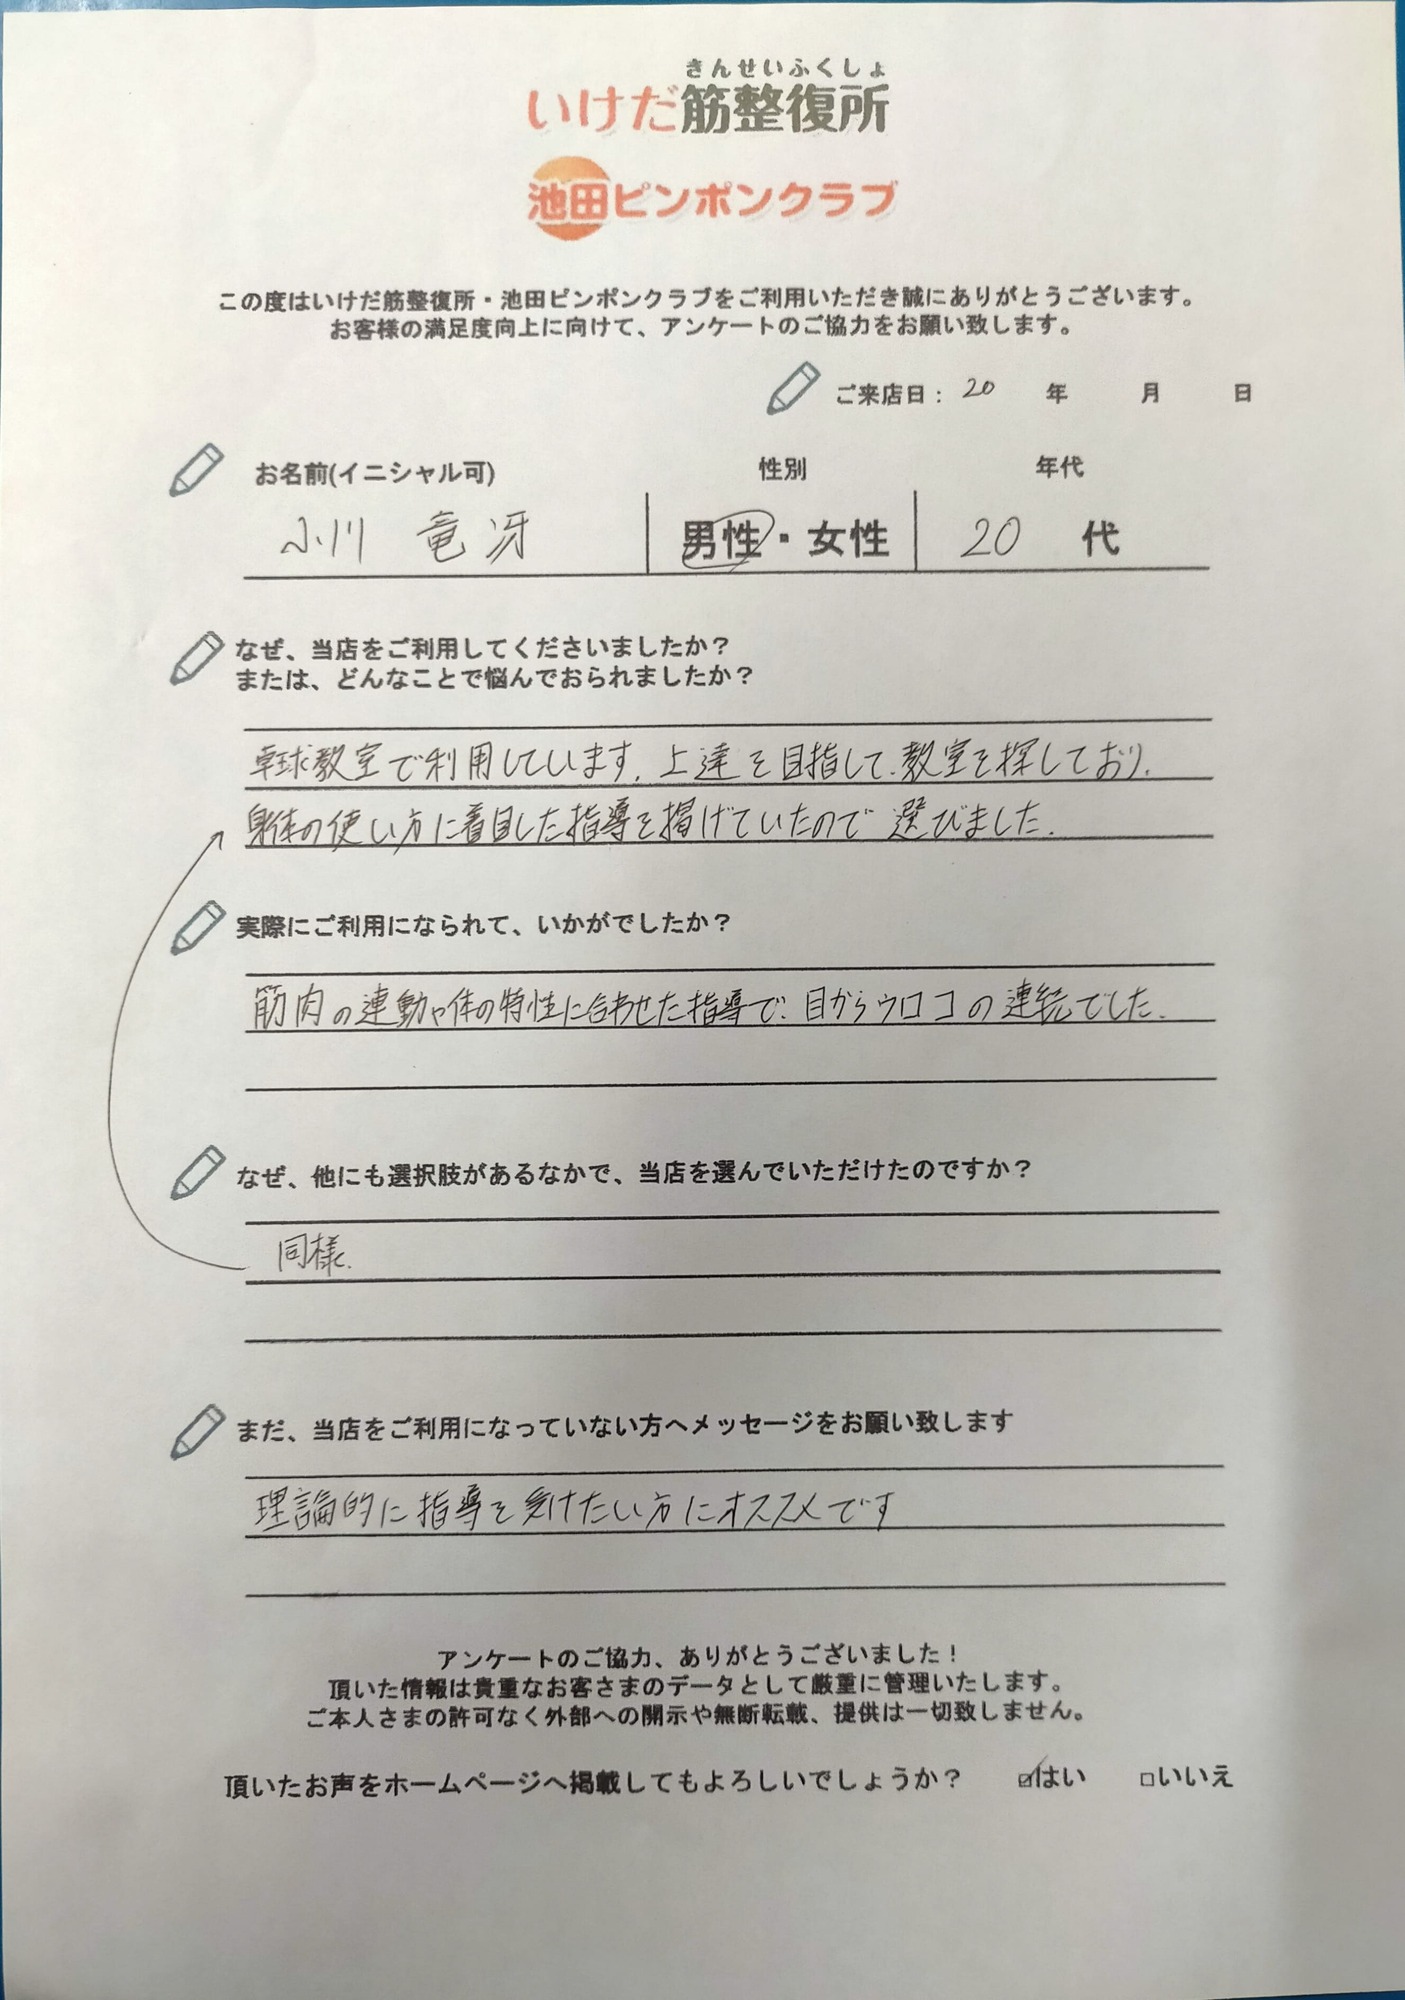 きんせいふくしょ
いけだ筋整復所
池田ピンポンクラブ
この度はいけだ筋整復所・池田ピンポンクラブをご利用いただき誠にありがとうございます。
お客様の満足度向上に向けて、アンケートのご協力をお願い致します。
ご来店日： 20 年 月 日
お名前(イニシャル可) 性別 年代
小川 竜冴 男性・女性 20 代
なぜ、当店をご利用してくださいましたか？
または、どんなことで悩んでおられましたか？
卓球教室で利用しています. 上達を目指して、教室を探しており、
身体の使い方に着目した指導を掲げていたので 選びました.
実際にご利用になられて、いかがでしたか？
筋肉の連動や体の特性に合わせた指導で、目からウロコの連続でした.
なぜ、他にも選択肢があるなかで、当店を選んでいただけたのですか？
同様.
まだ、当店をご利用になっていない方へメッセージをお願い致します
理論的に指導を受けたい方にオススメです
アンケートのご協力、ありがとうございました！
頂いた情報は貴重なお客さまのデータとして厳重に管理いたします。
ご本人さまの許可なく外部への開示や無断転載、提供は一切致しません。
頂いたお声をホームページへ掲載してもよろしいでしょうか？ ☑はい □いいえ